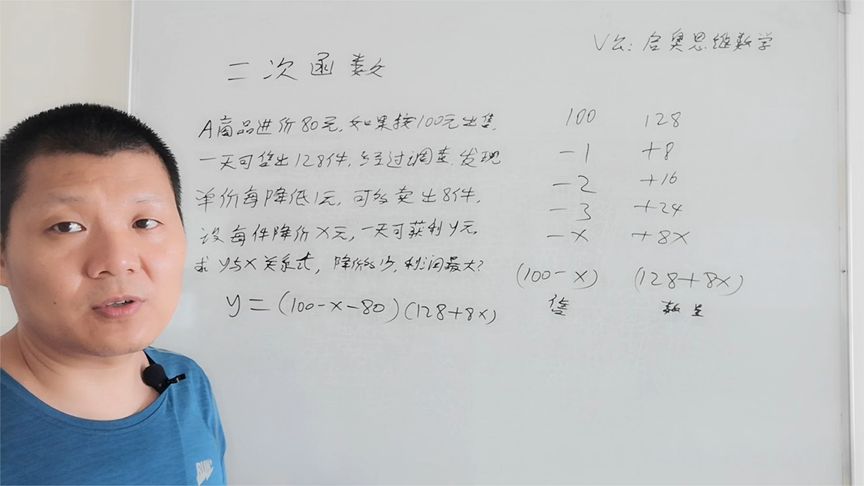 V公：启奥思维数学
二次函数
A商品进价80元，如果按100元出售，
一天可售出128件，经过调查，发现
单价每降低1元，可多卖出8件，
设每件降价X元，一天可获利y元，
求y与X关系式，降价多少，利润最大？
y=(100-x-80)(128+8x)
100 128
-1 +8
-2 +16
-3 +24
-x +8x
(100-x) (128+8x)
售 数量